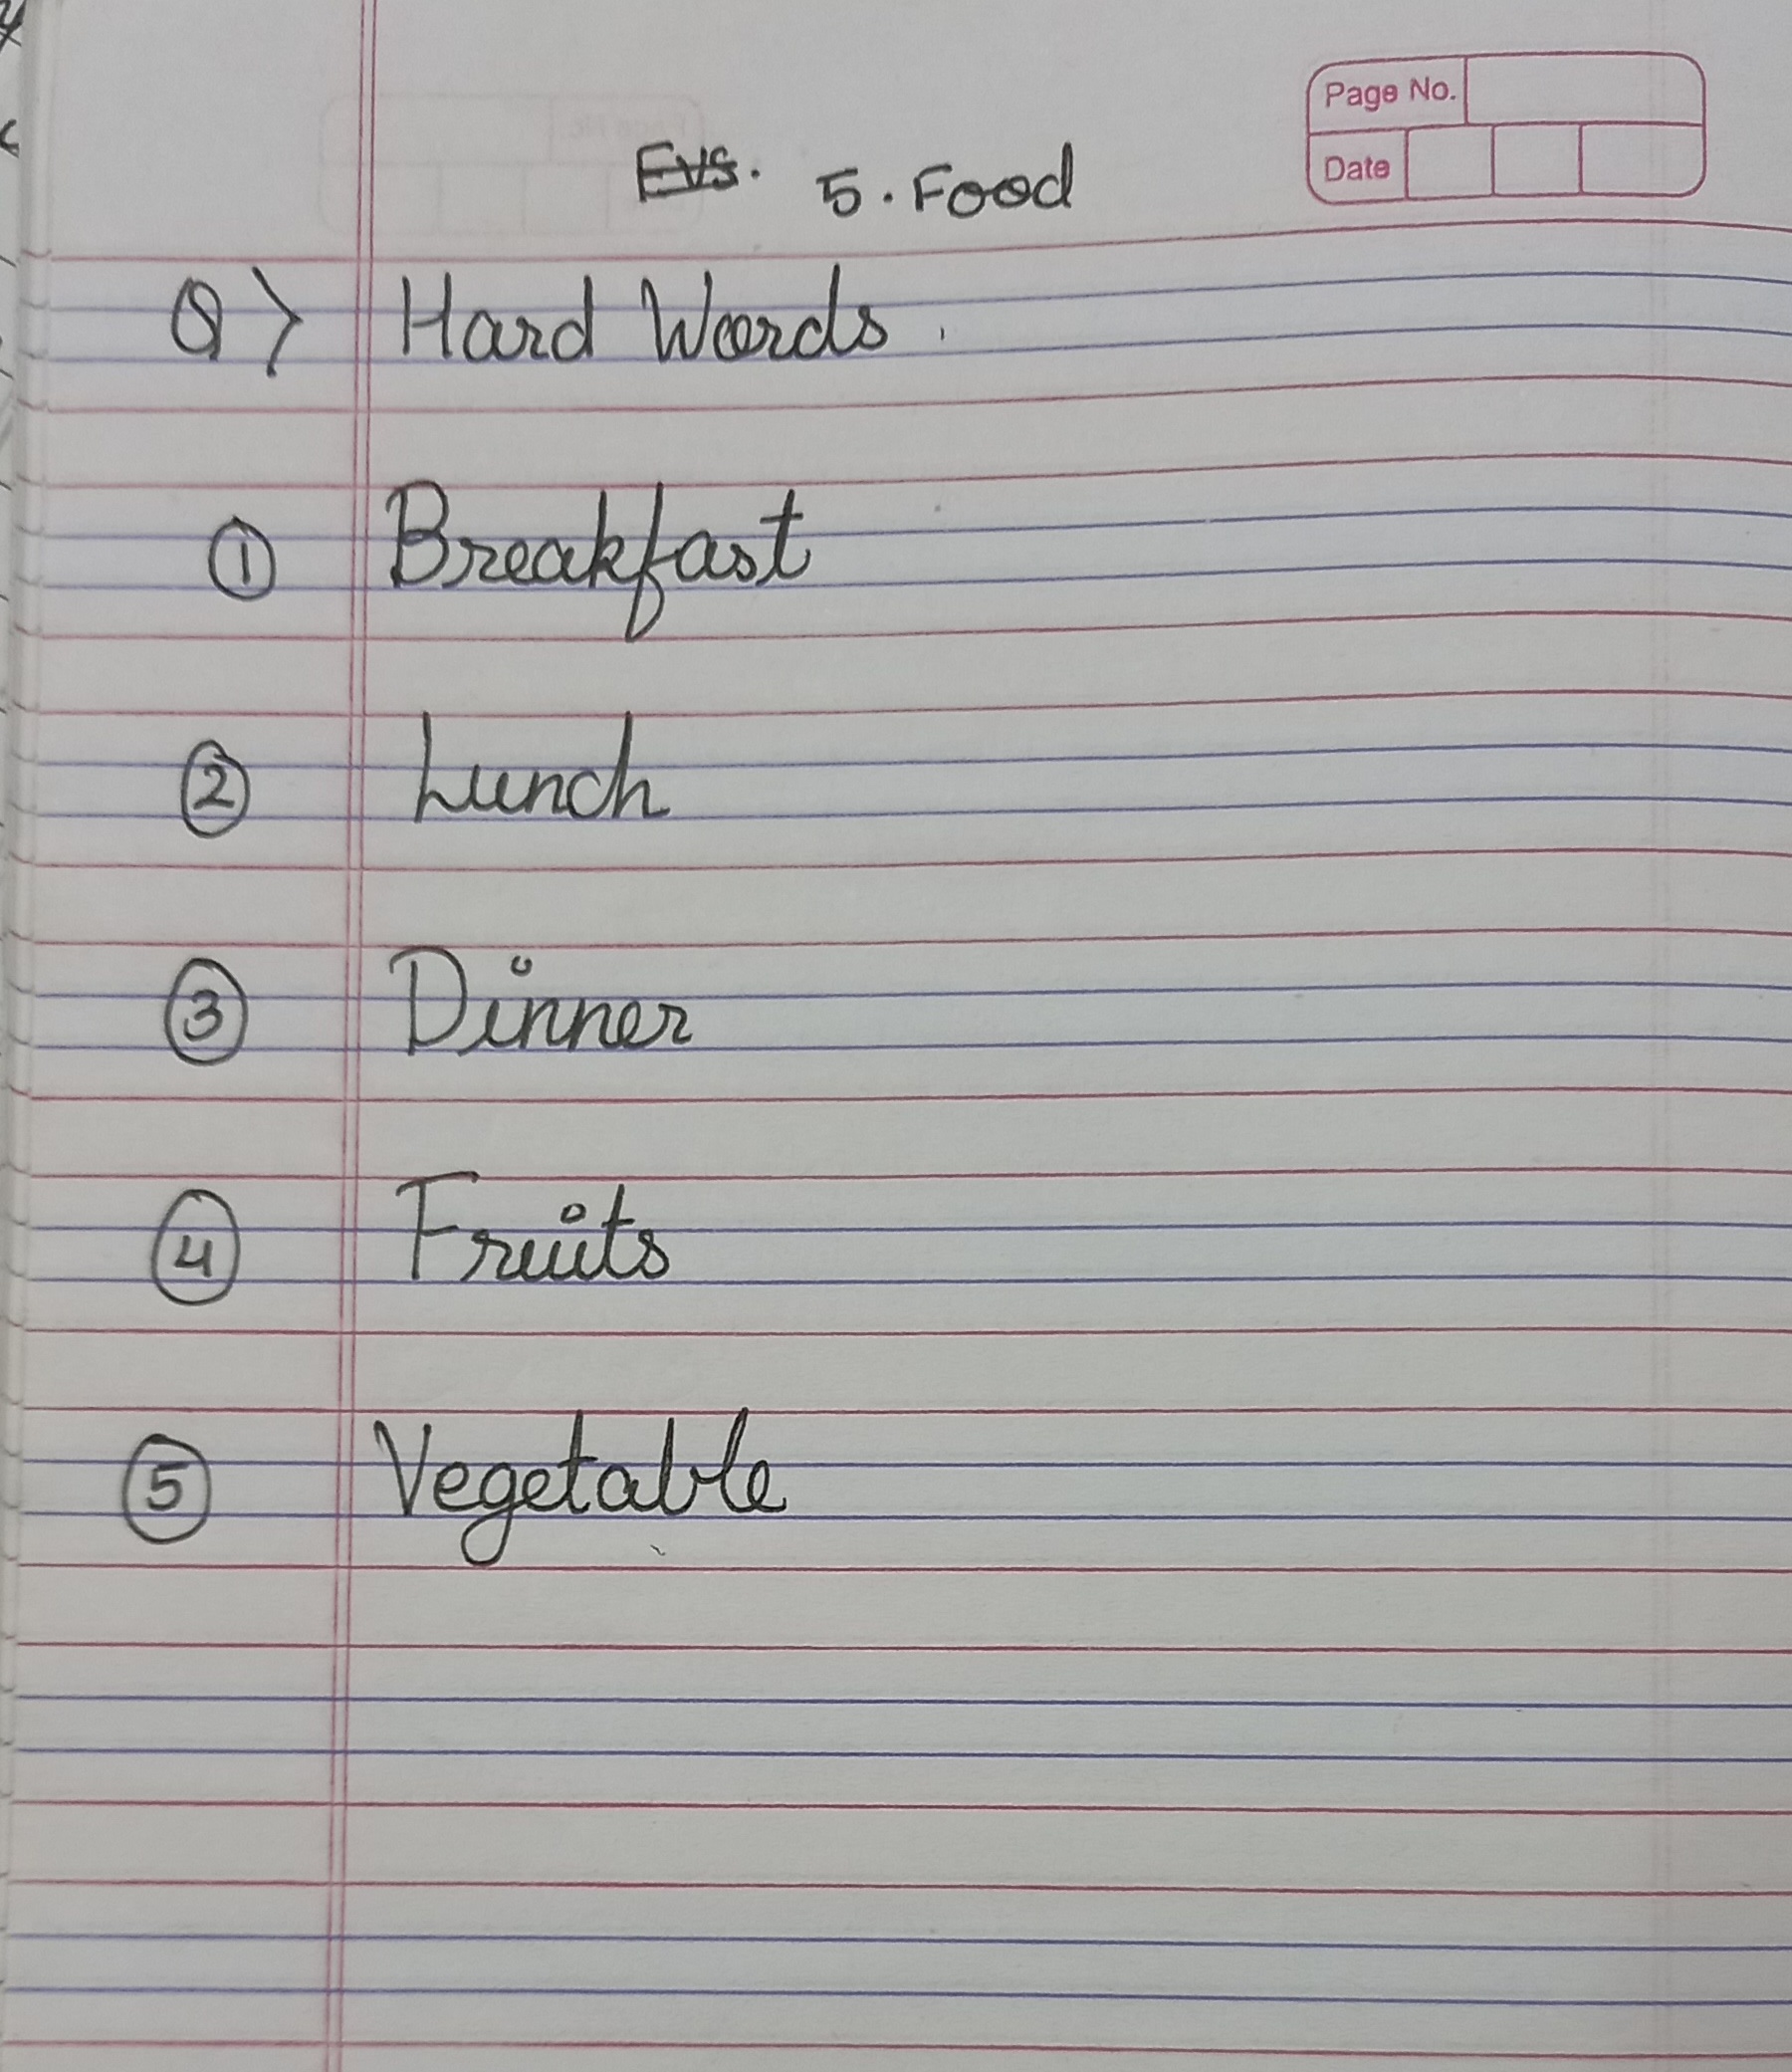 Page No.
Date
EVS. 5. Food
Q> Hard Words.
① Breakfast
② Lunch
③ Dinner
④ Fruits
⑤ Vegetable